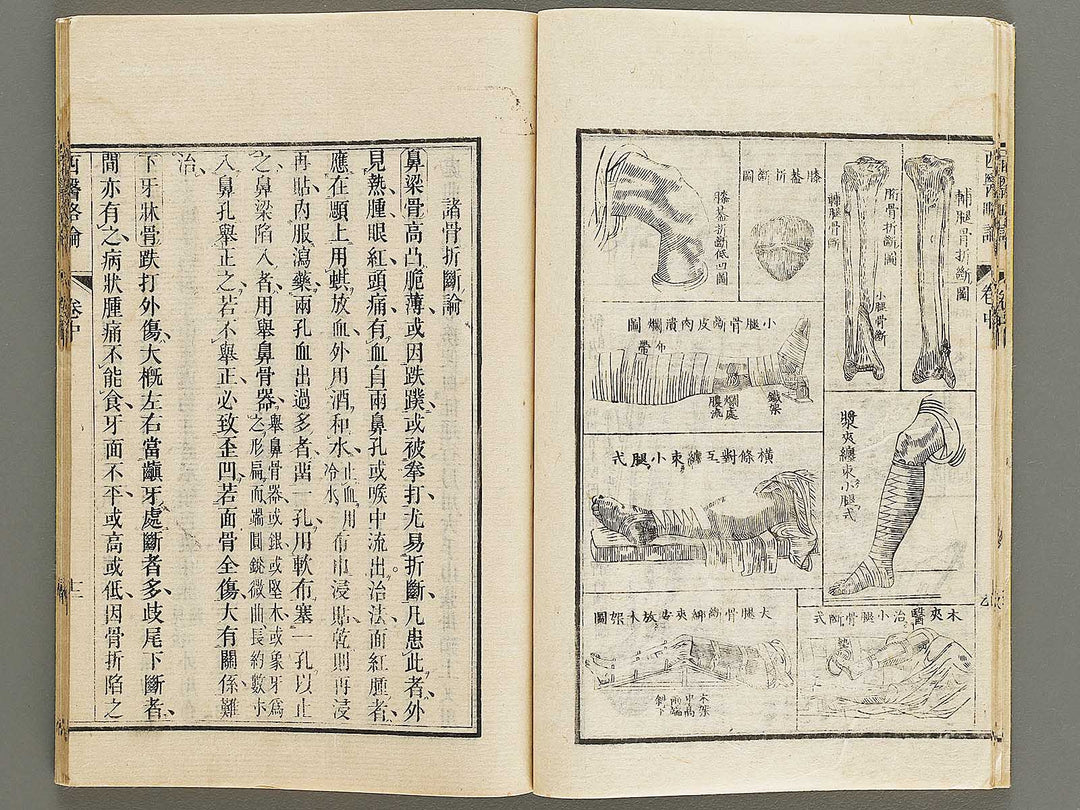 輔腿骨折斷圖
胻骨折斷圖
輔腿骨斷
小腿骨斷
膝蓋折斷圖
膝蓋折斷低凹圖
小腿骨斷皮肉潰爛圖
布帶
鐵架
爛處
膿流
漿夾纏束小腿式
橫條對互纏束小腿式
木夾醫治小腿骨斷式
大腿骨斷綁夾安放木架圖
木架
中高
兩端
斜下
卷中
諸骨折斷論
鼻梁骨高凸脆薄或因跌蹼或被拳打尤易折斷凡患此者外
見熱腫眼紅頭痛有血自兩鼻孔或喉中流出治法面紅腫者
應在顋上用蜞放血外用酒和水止血用冷水布巾浸貼乾則再浸
再貼內服瀉藥兩孔血出過多者畱一孔用軟布塞一孔以止
之鼻梁陷入者用舉鼻骨器舉鼻骨器或銀或堅木或象牙爲之形扁而端圓鈗微曲長約數寸
入鼻孔舉正之若不舉正必致歪凹若面骨全傷大有關係難
治
下牙牀骨跌打外傷大概左右當齻牙處斷者多歧尾下斷者
間亦有之病狀腫痛不能食牙面不平或高或低因骨折陷之
西醫略論
卷中
十二